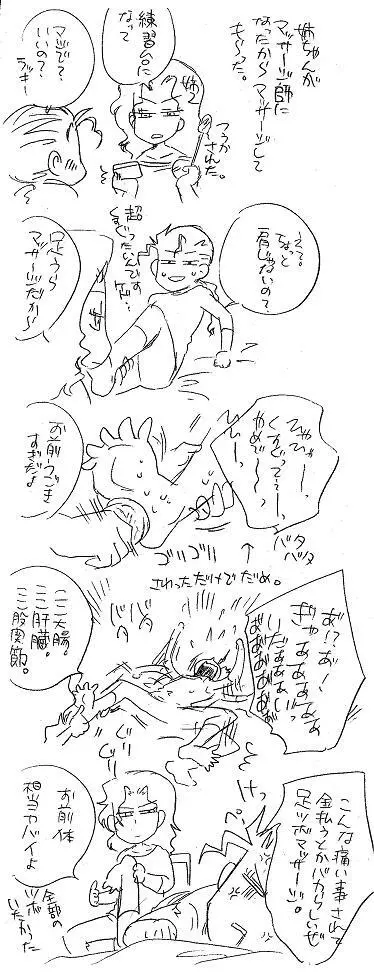 姉ちゃんが
マッサージ師に
なったからマッサージして
もらった。
練習台に
なって
姉→
マジで?
いいの?
ラッキー
つぅか
された。
えっ。
ちょっと
肩じゃないの?
超
くすぐったいんです
けど…
足うら
マッサージだから
ひゃひゃーっ、
くすぐってーっ、
やめでーっ、
ひーっ、
お前うごき
すぎだよ
バタ
バタ
ゴリゴリ
↑
さわっただけでだめ。
あ!?あ!
ぎゃああああ
いだぁぁぁい
ああああああ
バタ
バタ
ここ大腸。
ここ肝臓。
ここ股関節。
こんな痛い事されて
金払うとかバカらしいぜ
足ツボマッサージ。
けっ
お前体
相当ヤバイよ
全部の
ツボ
いたかった